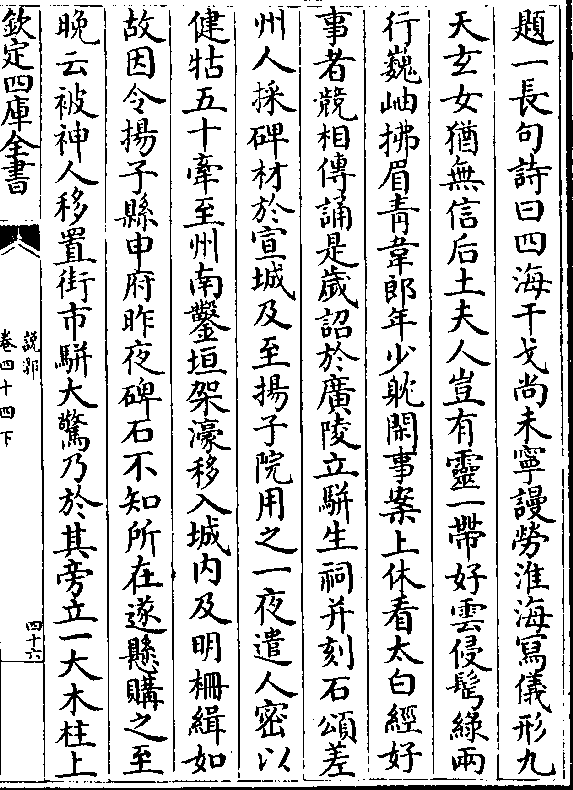 題一長句詩曰四海干戈尚未寧謾勞淮海寫儀形九
天玄女猶無信后土夫人豈有靈一帶好雲侵鬂綠兩
行巍岫拂眉青韋郎年少耽閒事案上休看太白經好
事者競相傳誦是歲詔於廣陵立駢生祠并刻石頌差
州人採碑材於宣城及至揚子院用之一夜遣人密以
健牯五十牽至州南鑿垣架濠移入城内及明柵緝如
故因令揚子縣申府昨夜碑石不知所在遂懸購之至
晚云被神人移置街市駢大驚乃於其旁立一大木柱上
欽定四庫全書
説郛
卷四十四下
四十六